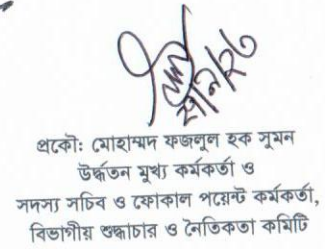 প্রকৌ: মোহাম্মদ ফজলুল হক সুমন
উর্দ্ধতন মূখ্য কর্মকর্তা ও
সদস্য সচিব ও ফোকাল পয়েন্ট কর্মকর্তা,
বিভাগীয় শুদ্ধাচার ও নৈতিকতা কমিটি